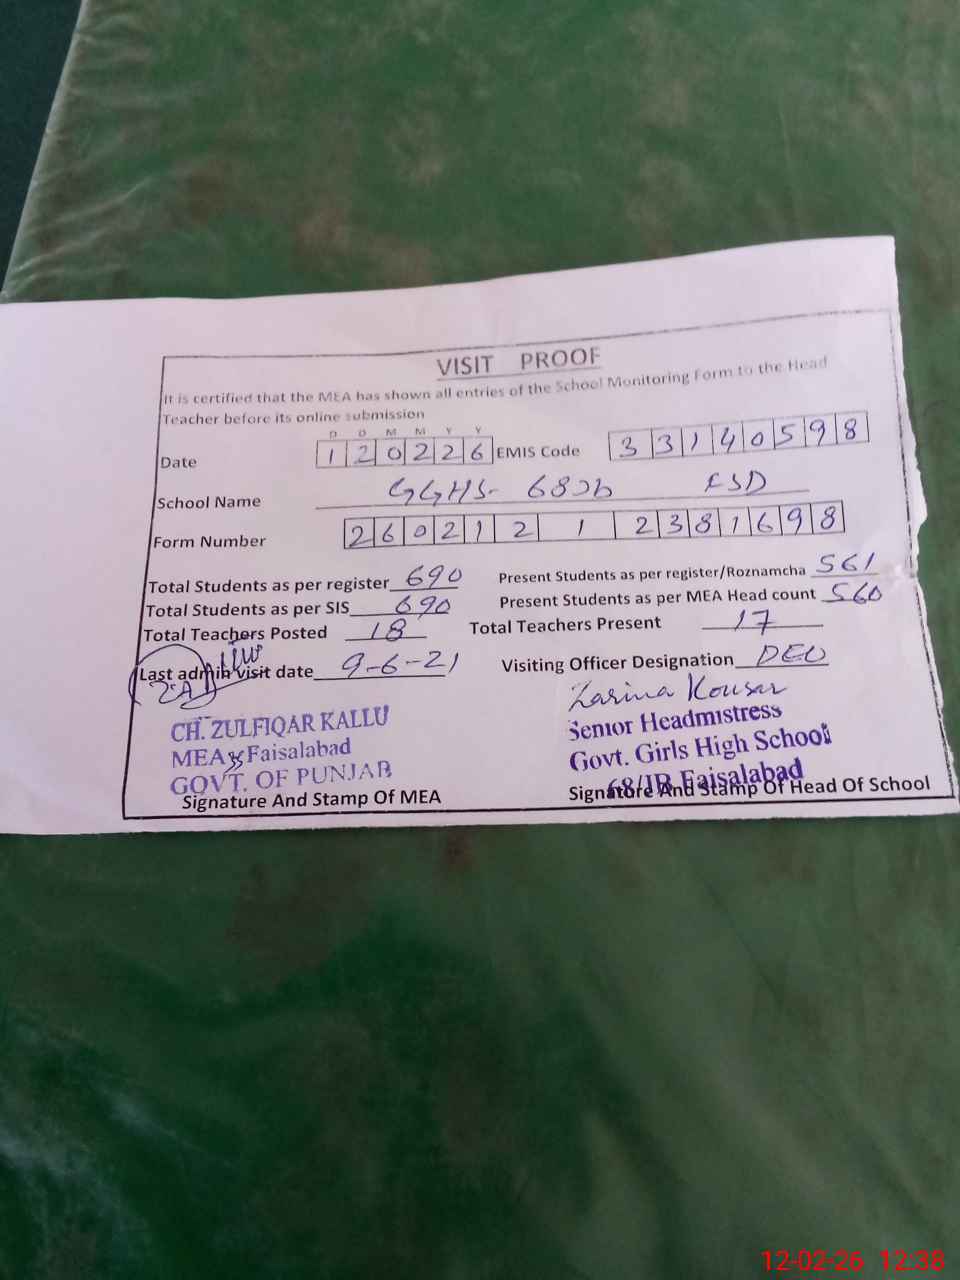 VISIT PROOF
It is certified that the MEA has shown all entries of the School Monitoring Form to the Head
Teacher before its online submission
D D M M Y Y
Date 1 2 0 2 2 6 EMIS Code 3 3 1 4 0 5 9 8
School Name GGHS- 68Jb FSD
Form Number 2 6 0 2 1 2 1 2 3 8 1 6 9 8
Total Students as per register 690 Present Students as per register/Roznamcha 561
Total Students as per SIS 690 Present Students as per MEA Head count 560
Total Teachers Posted 18 Total Teachers Present 17
Last admin visit date 9-6-21 Visiting Officer Designation DEO
Zarina Kousar
CH. ZULFIQAR KALLU
MEA Faisalabad
GOVT. OF PUNJAB
Signature And Stamp Of MEA
Senior Headmistress
Govt. Girls High School
68/JB Faisalabad
Signature And Stamp Of Head Of School
12-02-26 12:38